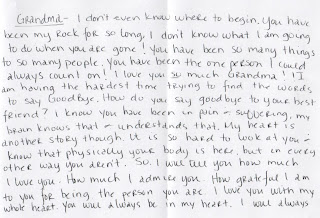 Grandma- I don't even know where to begin. You have
been my Rock for so long, I don't know what I am going
to do when you are gone! You have been so many things
to so many people. You have been the one person I could
always count on! I love you so much Grandma!! I
am having the hardest time trying to find the words
to say Goodbye. How do you say goodbye to your best
friend? I know you have been in pain - suffering, my
brain knows that - understands that. My heart is
another story though. It is so hard to look at you -
know that physically your body is here, but in every
other way you aren't. So. I will tell you how much
I love you. How much I admire you. How grateful I am
to you for being the person you are. I love you with my
whole heart. You will always be in my heart. I will always